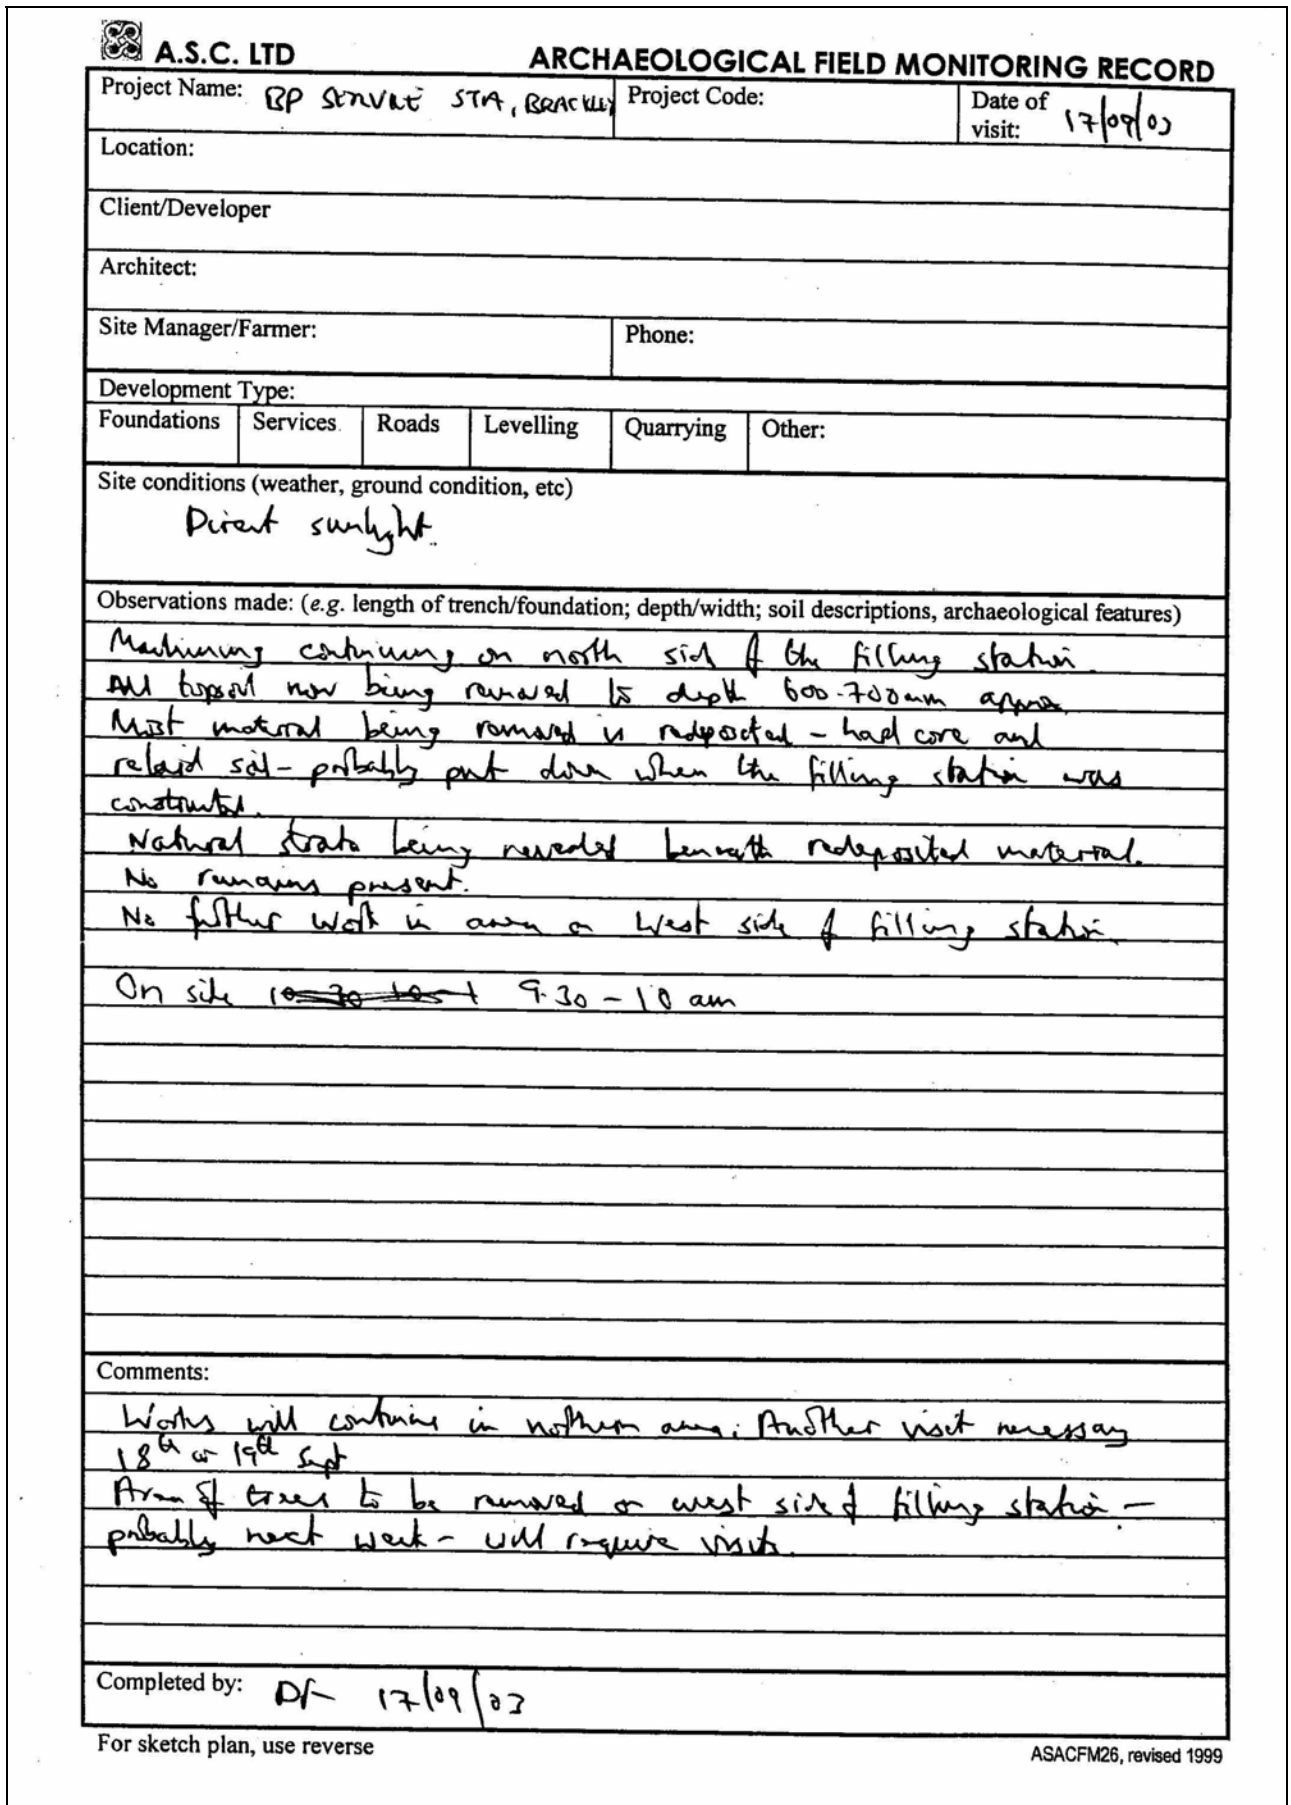 A.S.C. LTD
ARCHAEOLOGICAL FIELD MONITORING RECORD
Project Name: BP SERVICE STA, BRACKLEY
Project Code:
Date of visit: 17/09/03
Location:
Client/Developer
Architect:
Site Manager/Farmer:
Phone:
Development Type:
Foundations Services Roads Levelling Quarrying Other:
Site conditions (weather, ground condition, etc)
Direct sunlight.
Observations made: (e.g. length of trench/foundation; depth/width; soil descriptions, archaeological features)
Machining continuing on north side of the filling station
All topsoil now being removed to depth 600-700mm approx
Most material being removed is redeposited - hard core and
relaid soil - probably put down when the filling station was
constructed.
Natural strata being revealed beneath redeposited material.
No remains present.
No further work in area on west side of filling station.
On site 9.30 - 10 am
Comments:
Works will continue in northern area. Another visit necessary
18th or 19th Sept
Area of trees to be removed on west side of filling station -
probably next week - will require visits.
Completed by: DF 17/09/03
For sketch plan, use reverse
ASACFM26, revised 1999